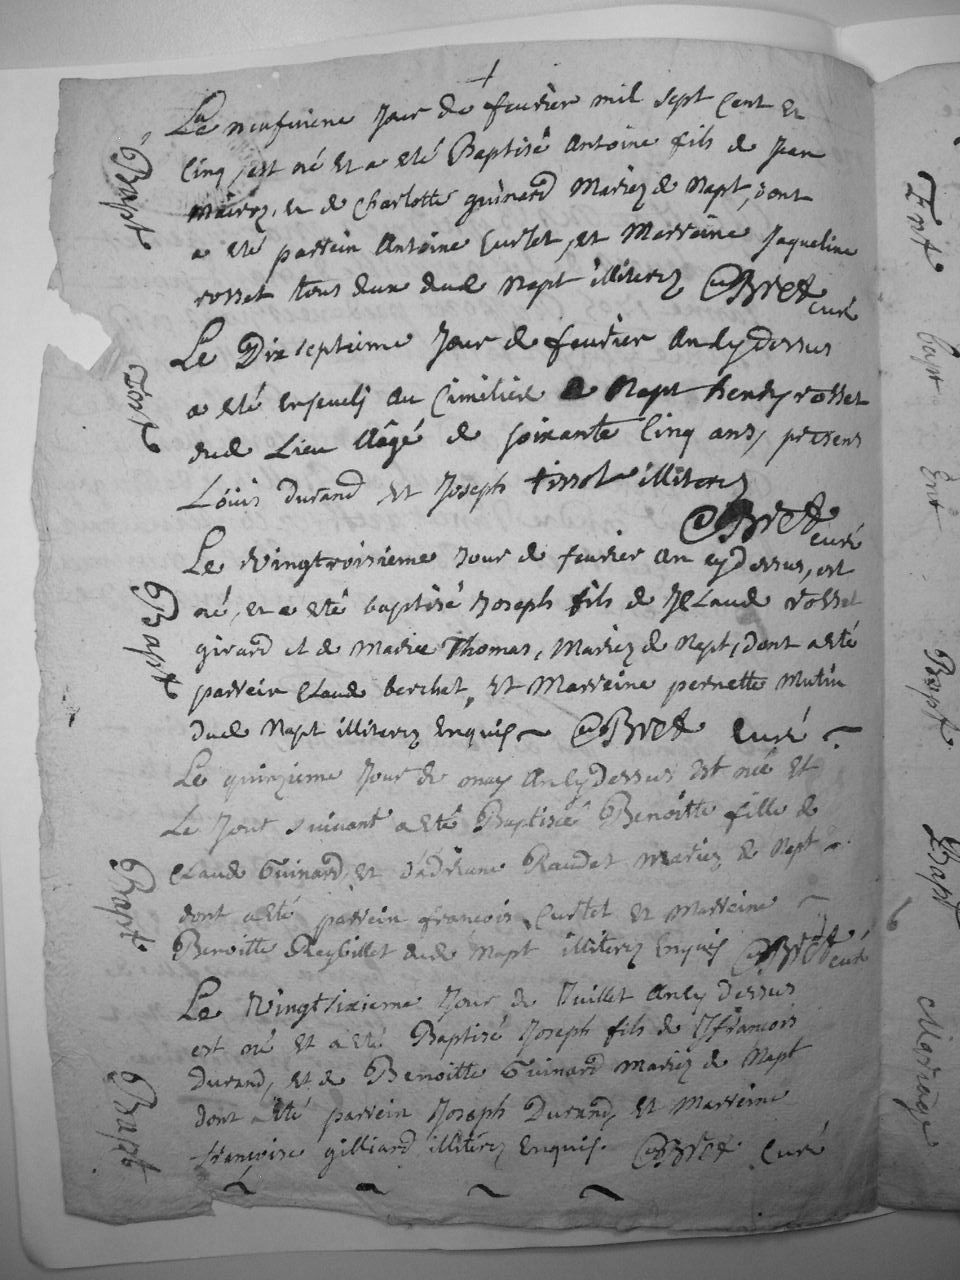 Bapt
Le neufvieme Jour de fevrier mil sept Cent et
Cinq, est né et a eté Baptisé Antoine fils de Jean
et de Charlotte guinard Mariez de Napt, dont
a eté parrein Antoine Curlet, et Marreine Jaqueline
rosset tous deux dud Napt illiterez Bret curé
Le Dix septieme Jour de fevrier an cy dessus
a eté enseveli au Cimitiere de Napt henry rosset
dud Lieu Aâgé de soixante Cinq ans, presens
Loüis Durand et Joseph tissot illiterez
Bret curé
Bapt
Le vingtroisieme Jour de fevrier an cy dessus, est
né, et a eté baptisé Joseph fils de Claude rosset
girard et de Marie Thomas, Mariez de Napt, dont a eté
parrein Claude berchet, et Marreine pernette Mutin
dud Napt illiterez enquis Bret Curé
Bapt
Le quinzieme Jour de may an cy dessus est née et
Le Jour suivant a eté Baptisée Benoitte fille de
Claude Guinard, et d'adriane Mariez de Napt
dont a eté parrein francois Curlet et Marreine
Benoitte dud Napt illiterez enquis Bret curé
Bapt
Le vingt sixieme Jour de Juillet an cy dessus
est né et a eté Baptisé Joseph fils de francois
Durand, et de Benoitte Guinard mariez de Napt
dont a eté parrein Joseph Durand, et Marreine
francoise gilliard illiterez enquis. Bret Curé
Ent
bapt
Ent
Bapt
Bapt
Marriage